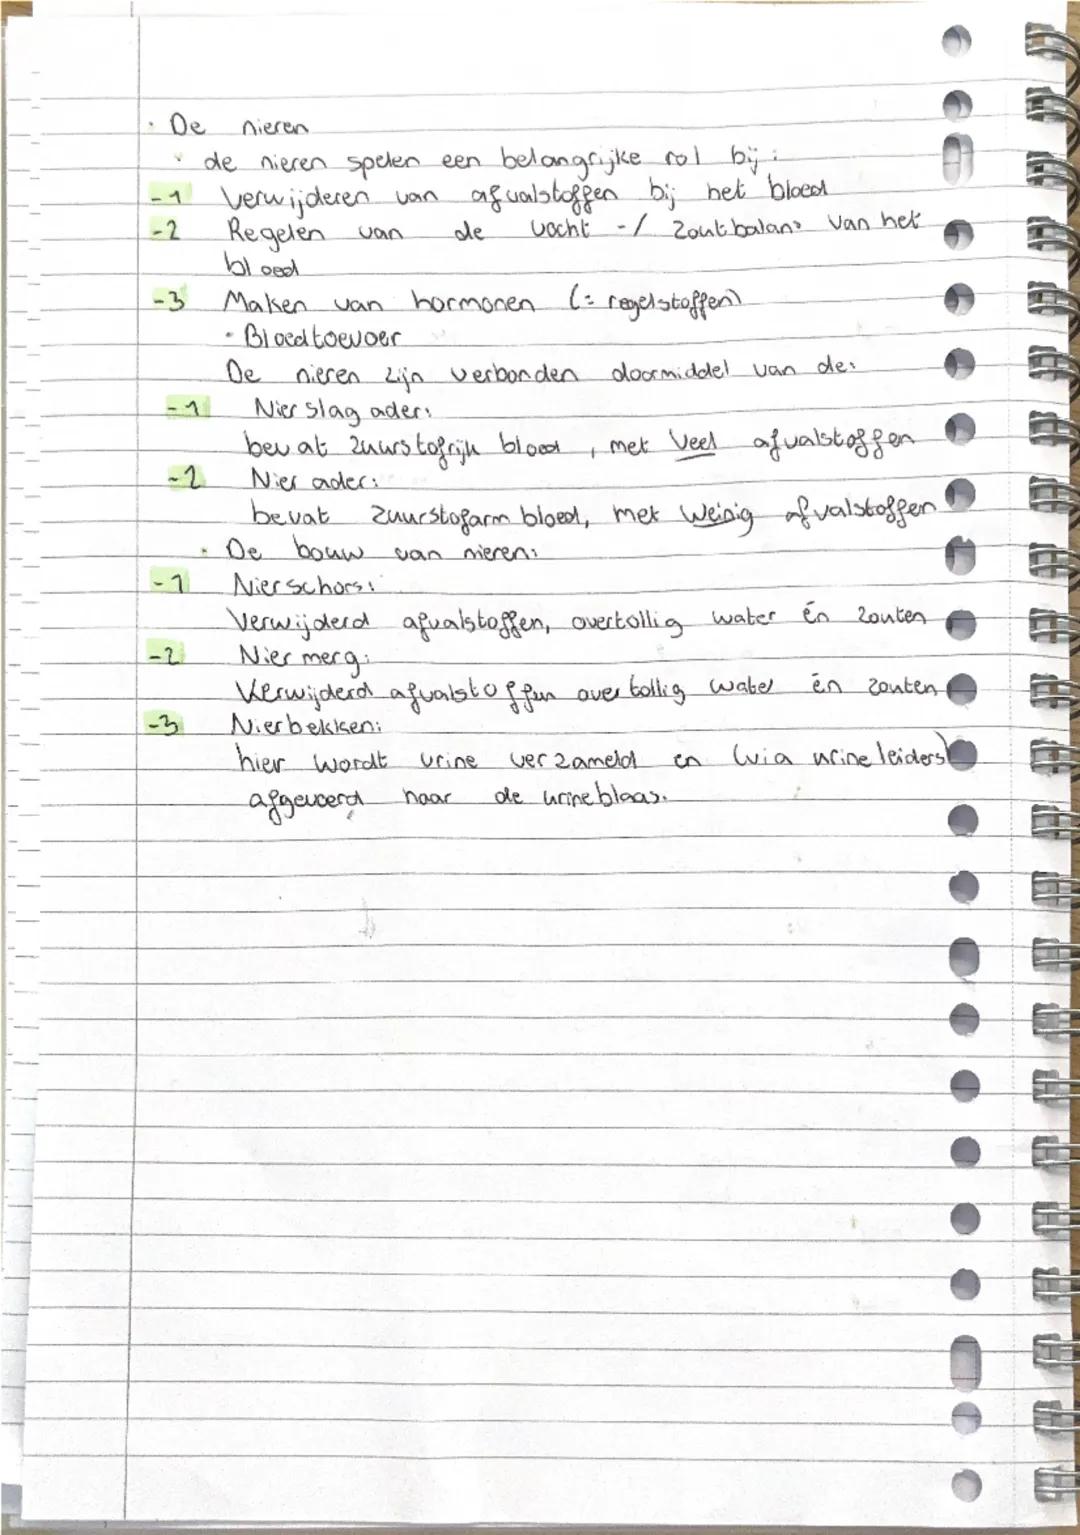 · De nieren
· de nieren spelen een belangrijke rol bij:
-1 Verwijderen van afvalstoffen bij het bloed
-2 Regelen van de vocht -/ Zoutbalans van het
bloed
-3 Maken van hormonen (= regelstoffen)
· Bloedtoevoer
De nieren zijn verbonden doormiddel van de:
-1 Nierslagader:
bevat zuurstofrijk bloed, met veel afvalstoffen
-2 Nierader:
bevat zuurstofarm bloed, met weinig afvalstoffen
· De bouw van nieren:
-1 Nierschors:
Verwijderd afvalstoffen, overtollig water én zouten
-2 Niermerg:
Verwijderd afvalstoffen overtollig water én zouten
-3 Nierbekken:
hier wordt urine verzameld en (via urineleiders)
afgevoerd naar de urineblaas.